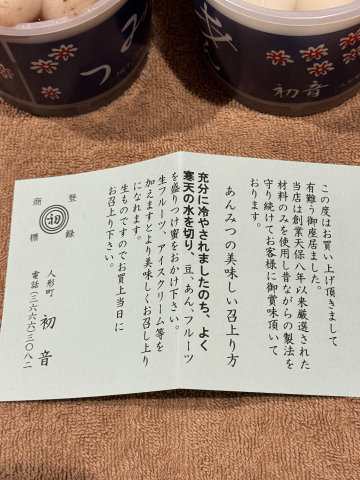 みつ
初音
この度はお買い上げ頂きまして
有難う御座居ました。
当店は創業天保八年以来厳選された
材料のみを使用し昔ながらの製法を
守り続けてお客様に御賞味頂いて
おります。
あんみつの美味しい召上り方
充分に冷やされましたのち、よく
寒天の水を切り、豆、あん、フルーツ
を盛りつけ蜜をおかけ下さい。
生フルーツ、アイスクリーム等を
加えますとより美味しくお召し上り
になれます。
生ものですのでお買上当日に
お召上り下さい。
登録
初
商標
人形町 初音
電話(三六六六)三〇八二